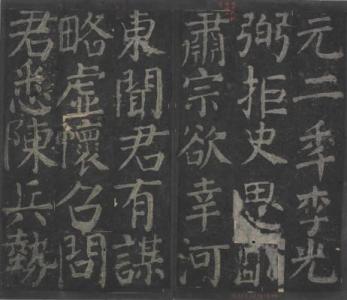 元二秊李光
弼拒史思明
肅宗欲幸河
東聞君有謀
略虛懷召問
君悉陳兵勢